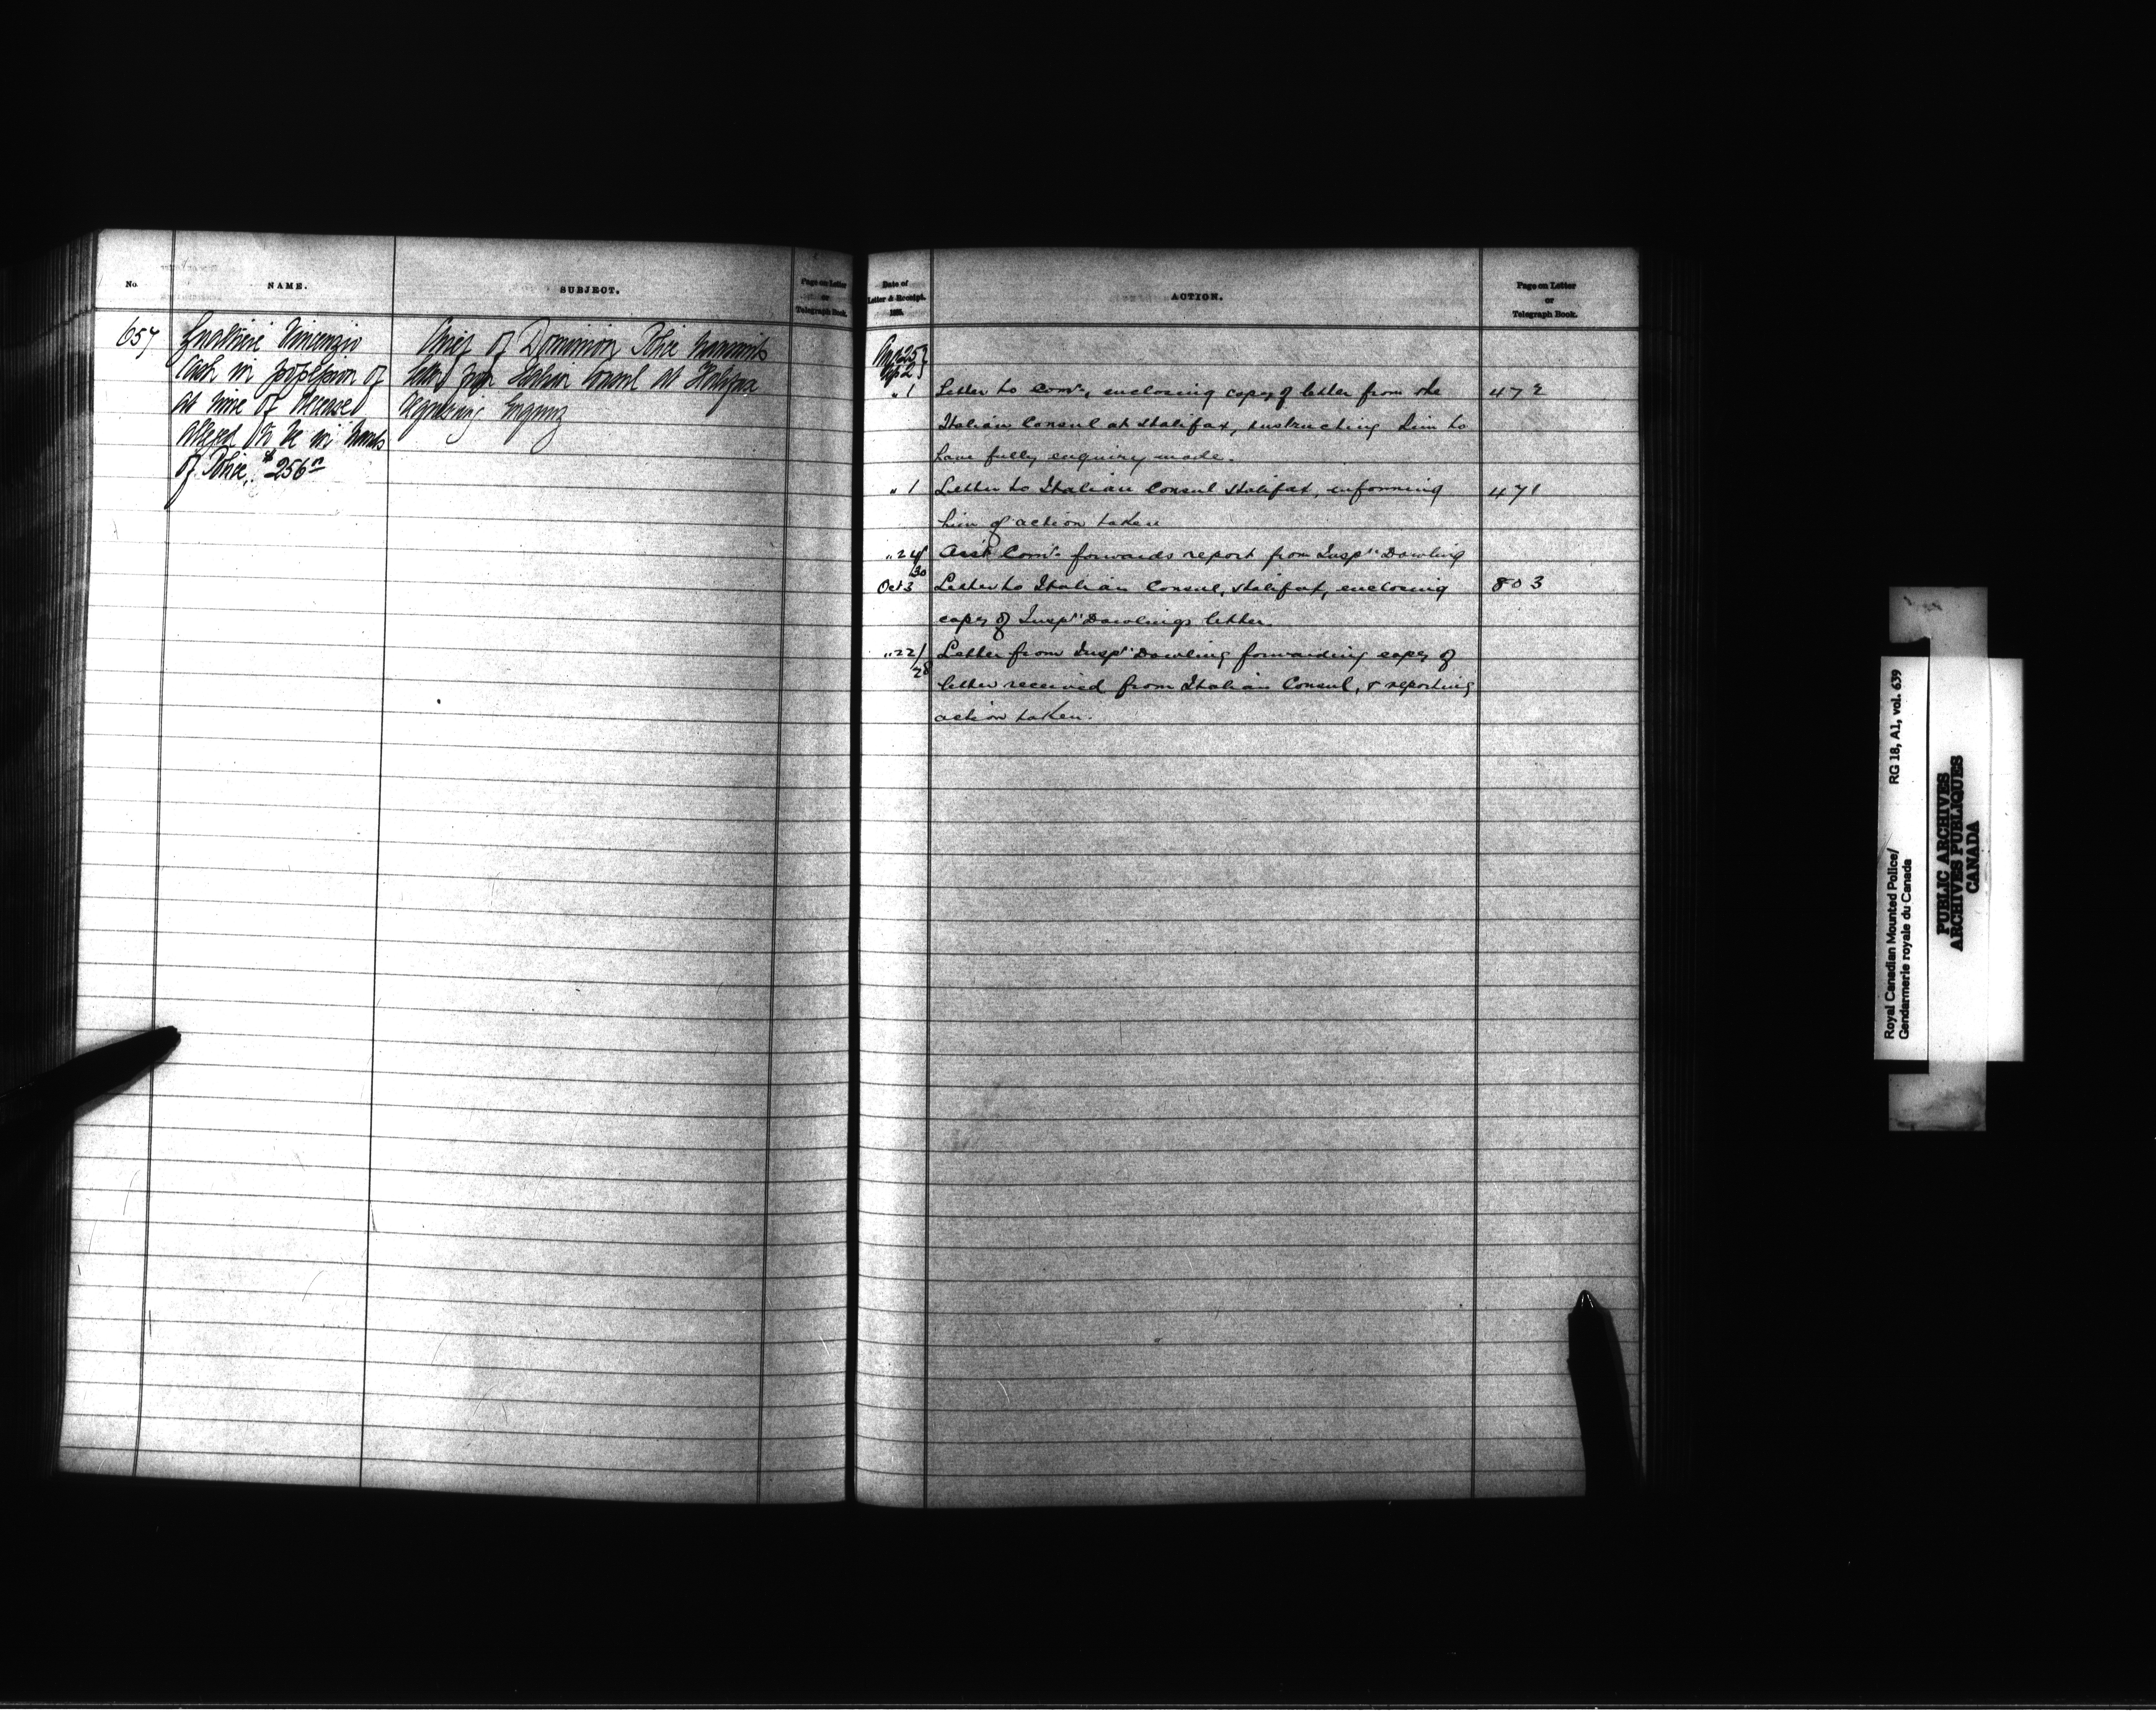 No.
NAME.
SUBJECT.
Page on Letter
or
Telegraph Book.
657
Gualtieri Vincenzio
Cash in possession of
at time of decease
alleged to be in hands
of Police, $256
Chief of Dominion Police transmits
letter from Italian Consul at Halifax
regarding Enquiry
Date of
Letter & Receipt.
ACTION.
Page on Letter
or
Telegraph Book.
Aug 25 }
Sep 2 }
" 1 Letter to Comr., enclosing copy of letter from the 472
Italian Consul at Halifax, instructing him to
have fully enquiry made.
" 1 Letter to Italian Consul Halifax, informing 471
him of action taken
" 24/30 Asst Comr. forwards report from Inspr Dowling
Oct 3 Letter to Italian Consul, Halifax, enclosing 803
copy of Inspr Dowlings letter.
" 22/28 Letter from Inspr Dowling forwarding copy of
letter received from Italian Consul, & reporting
action taken.
Royal Canadian Mounted Police/ RG 18, A1, vol. 639
Gendarmerie royale du Canada
PUBLIC ARCHIVES
ARCHIVES PUBLIQUES
CANADA